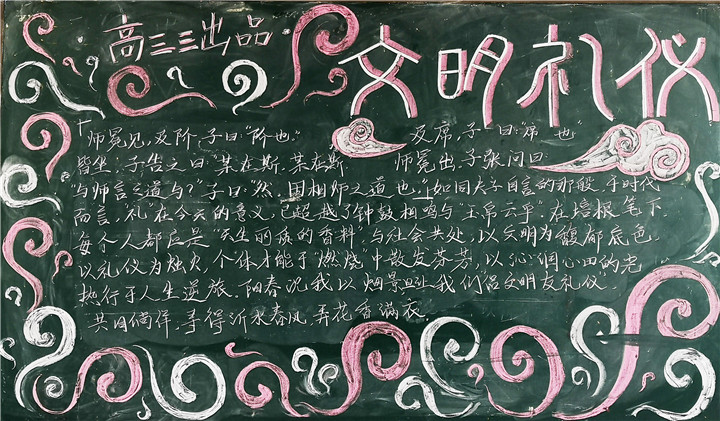 高三三出品
文明礼仪
"师冕见,及阶,子曰:"阶也。" 及席,子曰:"席也"
皆坐,子告之曰"某在斯,某在斯" 师冕出,子张问曰
"与师言之道与?"子曰:"然,固相师之道也。"如同夫子自言的那般,于时代
而言,"礼"在今天的意义,已超越了钟鼓相鸣与"玉帛云乎"。在培根笔下
每个人都应是"天生丽质的香料",与社会共处,以文明为馥郁底色
以礼仪为烛火,个体才能于"燃烧"中散发芬芳,以沁润心田的光
热行于人生逆旅。阳春况我以烟景,让我们"侣文明友礼仪"
共日徜徉,享得沂水春风,弄花香满衣。